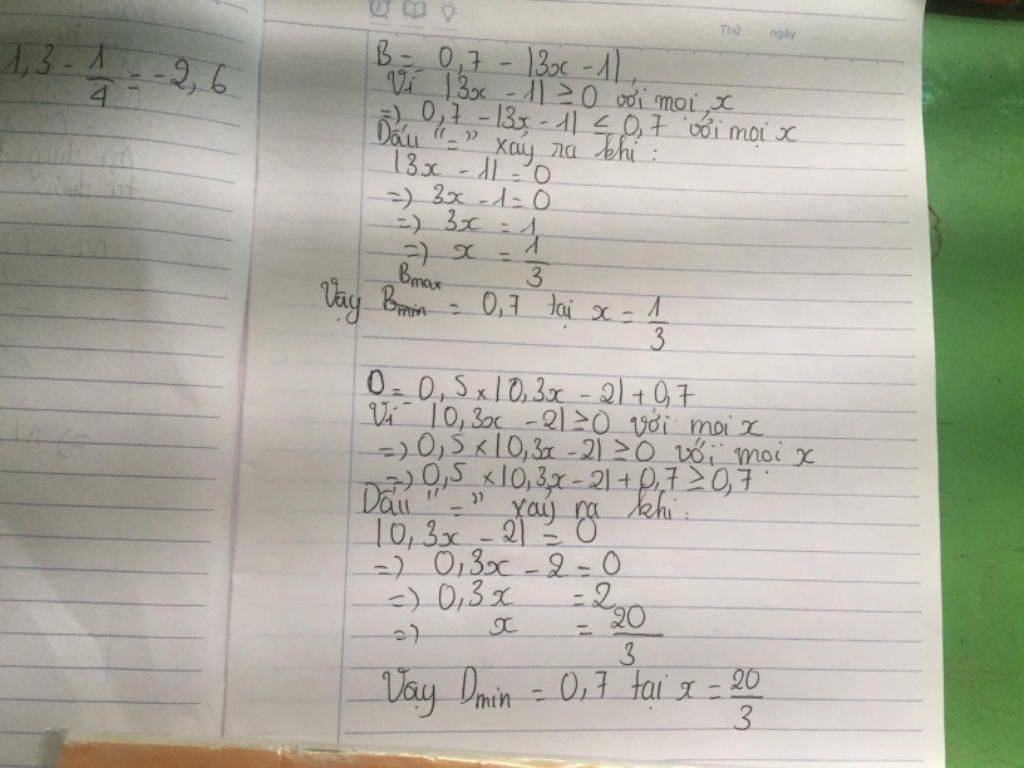 Thứ ngày
1,3 - 1/4 = -2,6
B = 0,7 - |3x - 1|
Vì |3x - 1| ≥ 0 với mọi x
=> 0,7 - |3x - 1| ≤ 0,7 với mọi x
Dấu "=" xảy ra khi :
|3x - 1| = 0
=> 3x - 1 = 0
=> 3x = 1
=> x = 1/3
Bmax
Vậy Bmin = 0,7 tại x = 1/3
D = 0,5 x |0,3x - 2| + 0,7
Vì |0,3x - 2| ≥ 0 với mọi x
=> 0,5 x |0,3x - 2| ≥ 0 với mọi x
=> 0,5 x |0,3x - 2| + 0,7 ≥ 0,7
Dấu "=" xảy ra khi :
|0,3x - 2| = 0
=> 0,3x - 2 = 0
=> 0,3x = 2
=> x = 20/3
Vậy Dmin = 0,7 tại x = 20/3